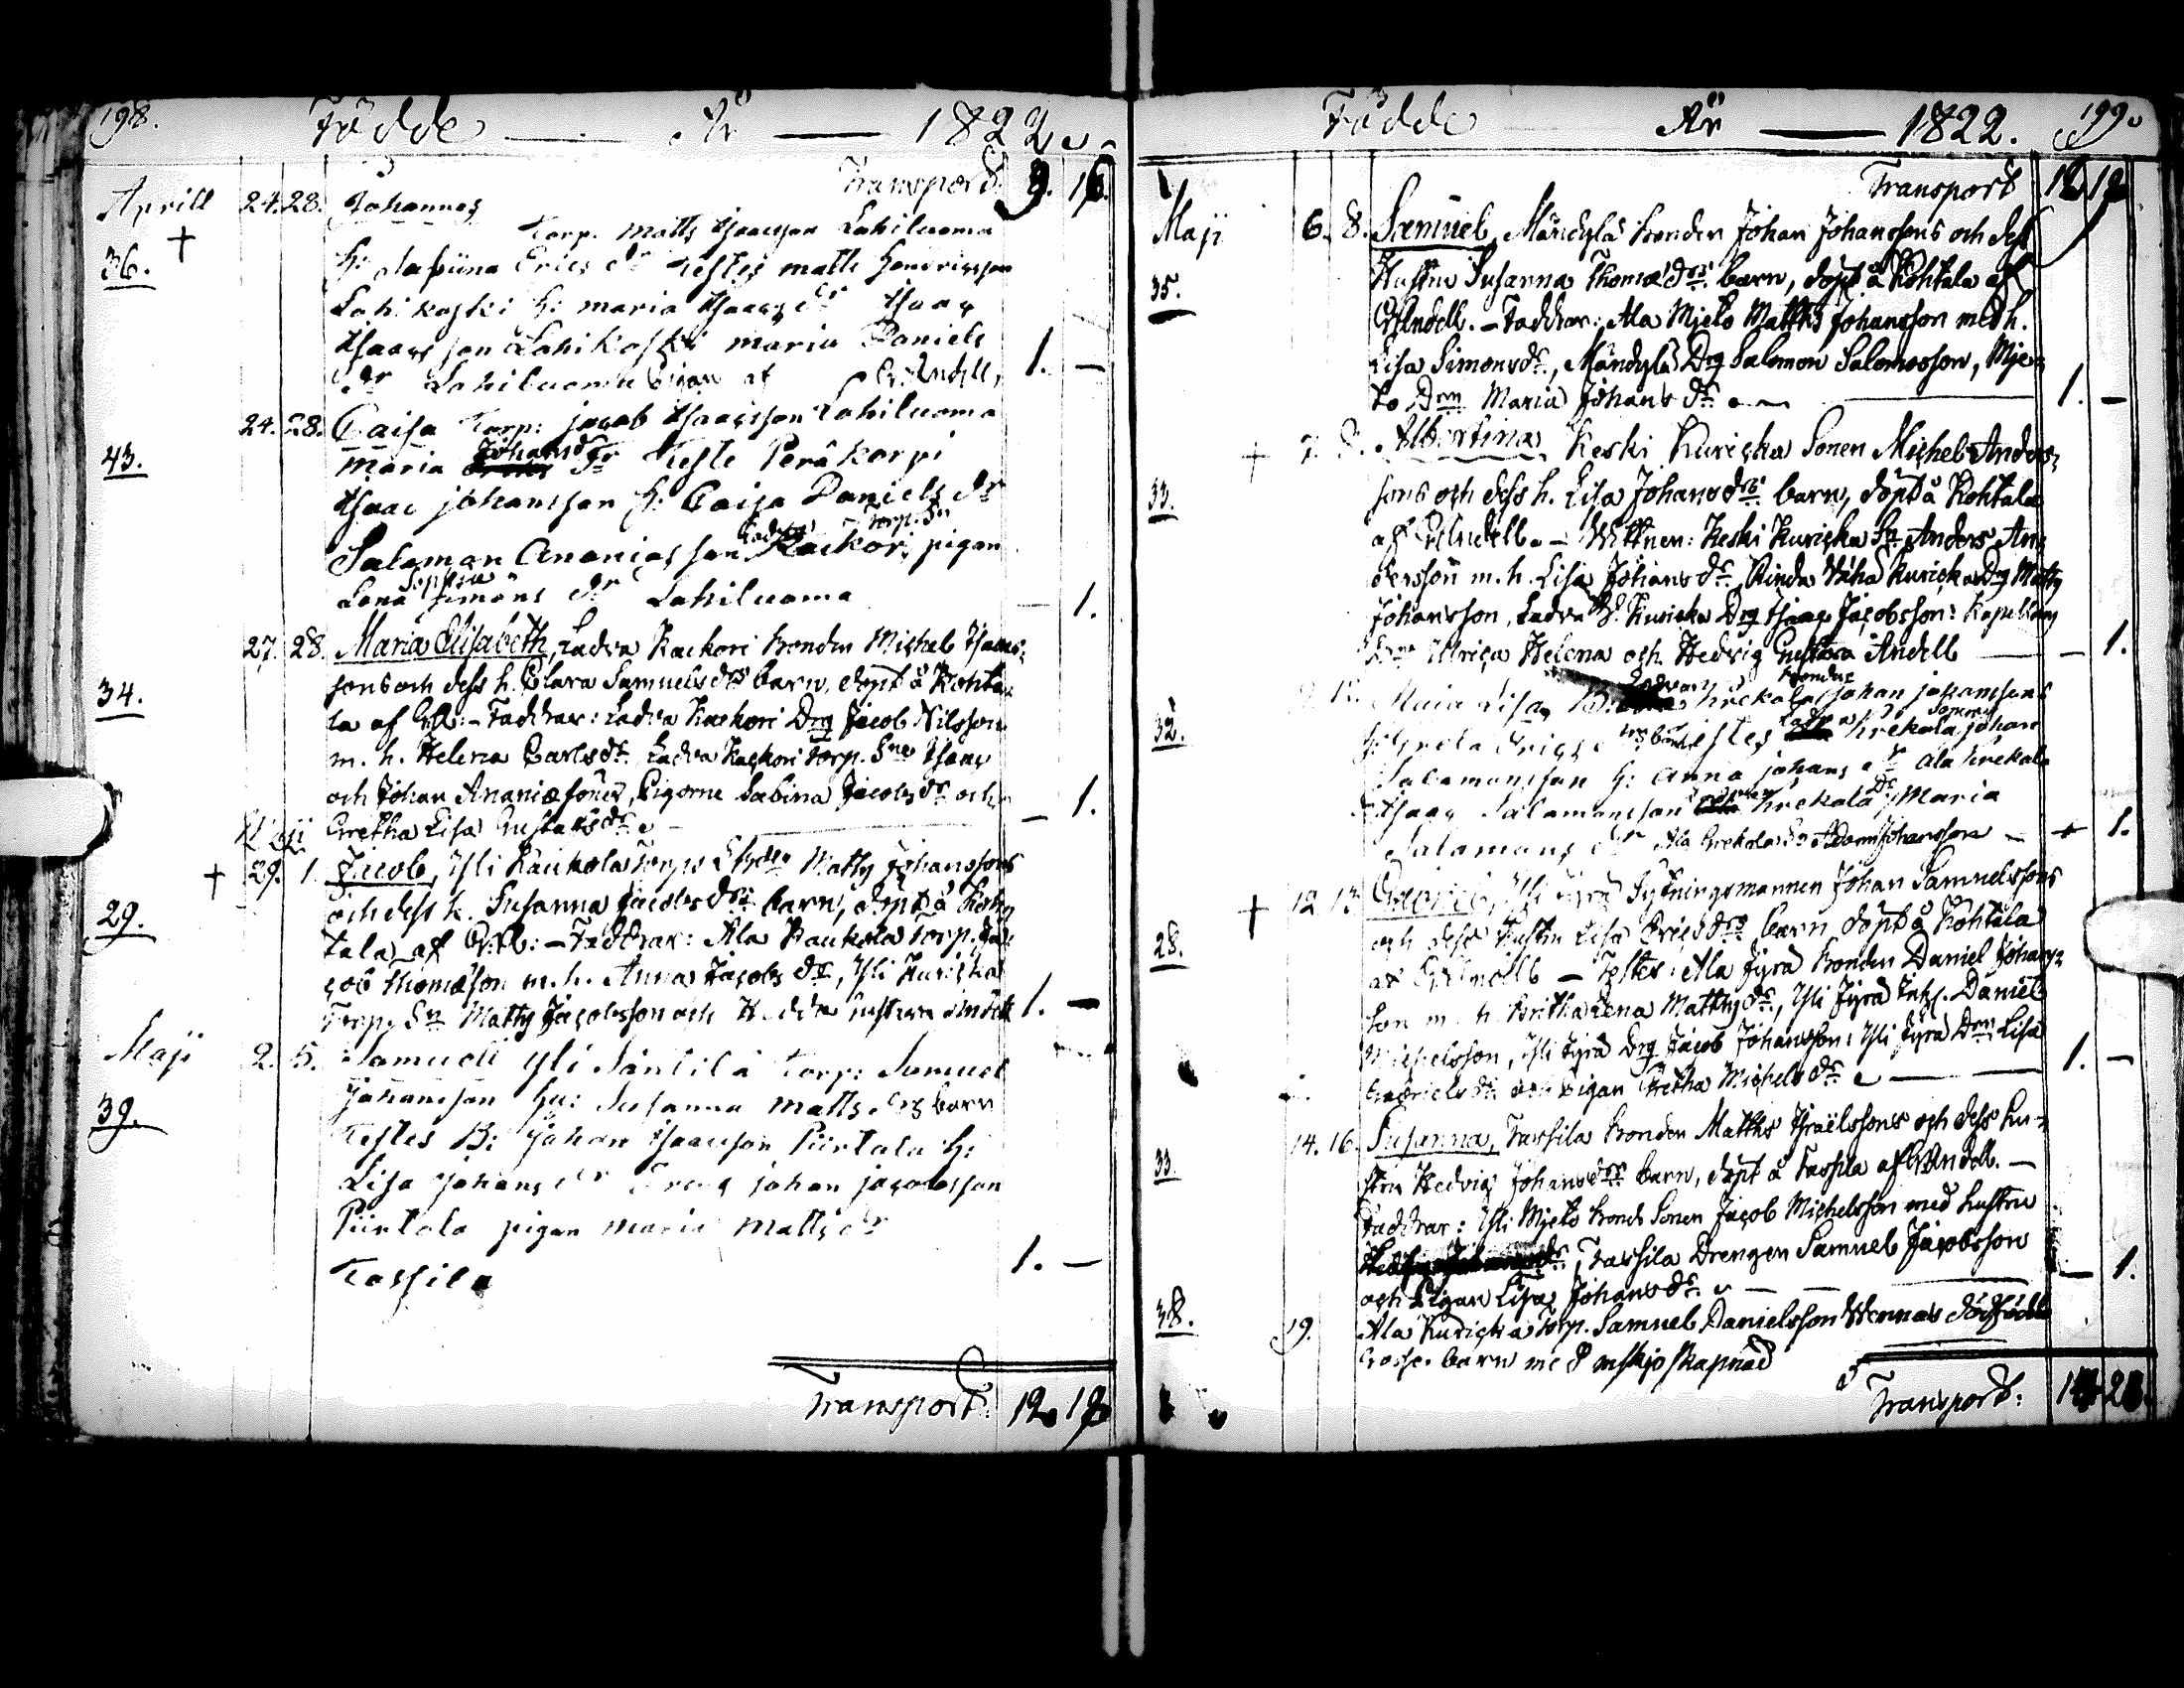 198. Födde — År — 1822.
Transport 9. 16.
Aprill 24. 28. Johannes
Torp. Matts Isaacsson Lahiluoma
36. †
h: Erics dr Testes matts Hendricsson
Lahikoski h: maria Isaacs dr Isaac
Isaacs son Lahikoski maria Daniels
dr Lahiluoma pigan af And:ll, 1. —
24. 28. Caisa Torp: jacob Isaacsson Lahiluoma
43.
maria Johans dr Teste Peräkorpi
Isaac johansson h: Caisa Daniels dr
Torp. Sn
Salamon Ananias son Ladva Kackori pigan
Sophia
Lena Simons dr Lahiluoma — 1.
27. 28. Maria Elisabeth, Ladva Kackori bonden Michel Isaacs-
sons och dess h. Clara Samuelsdrs barn, döpt å Kohta-
34.
la af — Faddrar: Ladva Kackori Drg Jacob Nilsson
m. h. Helena Carlsdr. Ladva Kackori torp. Sne Isaac
och Johan Ananiæ söner, Pigorne Sabina Jacobsdr och
Gretha Lisa Gustafsdr. — 1.
Maji
† 29. 1. Jacob, Yli Kaukola Torps Matts Johanssons
och dess h. Susanna Jacobs drs barn, döpt å Koh-
29.
tala af — Faddrar: Ala Kaukola torp. Ja-
cob Thomæson m. h. Anna Jacobs dr, Yli Kuricka
Torp. Sn Matts Jacobsson och Hedda Gustava 1. —
Maji 2. 5. Samuel Yli Säntilä Torp: Samuel
Johansson hu: Susanna matts drs barn
39.
Testes B: Johan Isaacsson Piirtala h:
Lisa Johans dr Dreng johan jacobsson
Piirtala pigan maria matts dr
Tassila 1. —
Transport: 12. 18.
Födde — År — 1822. 199.
Transport 12 18
Maji 6. 8. Samuel, Mändylä bonden Johan Johanssons och dess
Hustru Susanna Thomædrs barn, döpt å Kohtala af
35.
Andell. — Faddrar: Ala Mjeto Matths Johansson med h.
Lisa Simonsdr, Mändylä Drg Salomon Salomosson, Mje-
to Drn Maria Johans dr. — 1. —
† 7. 8. Albertina, Keski Kuricka Sonen Michel Anders-
sons och dess h. Lisa Johans drs barn, döpt å Kohtala
33.
af Andell. — Wittnen: Keski Kuricka Sn Anders An-
dersson m. h. Lisa Johans dr, Rinda Wäha Kuricka Drg Matts
Johansson, Ladva Kuricka Drg Isaac Jacobsson: Kapellans
Ulrica Helena och Hedvig Gustava Andell — 1.
Maia Lisa, Ladva Krekola bonden johan johanssons
32.
h: Greta Erics drs barn Testes Ladva Krekola Sonen johan
Salamonsson h: Anna johans dr Ala Krekola
Isaac Salamonsson Krekola Maria
Salamons dr Ala Krekola Sn Adam Johansson — 1.
† 12 13 Gabriel, Yli Jyrä Sytningsmannen Johan Samuelssons
och dess Hustru Lisa Erics drs barn döpt å Kohtala
28.
af Andell — Testes: Ala Jyrä bonden Daniel Johans-
son m. h. Britha Lena Matths dr, Yli Jyrä Inh. Daniel
Michelsson, Yli Jyrä Drg Jacob Johansson: Yli Jyrä Drn Lisa
Gabriels dr och Pigan Gretha Michels dr — 1. —
14. 16. Susanna, Tassila bonden Matths Israëlssons och dess hu-
33.
stru Hedvig Johans drs barn, döpt å Tassila af Andell. —
Faddrar: Yli Mjeto bonde Sonen Jacob Michelsson med hustru
Tassila Drengen Samuel Jacobsson
och Pigan Lisa Johans dr. — 1.
38. 19. Ala Kuricka torp. Samuel Danielsson Wennas dödfödde
Gosse barn med
Transport: 14 20.